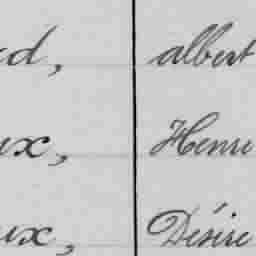 d, albert
ux, Henri
ux, Désiré